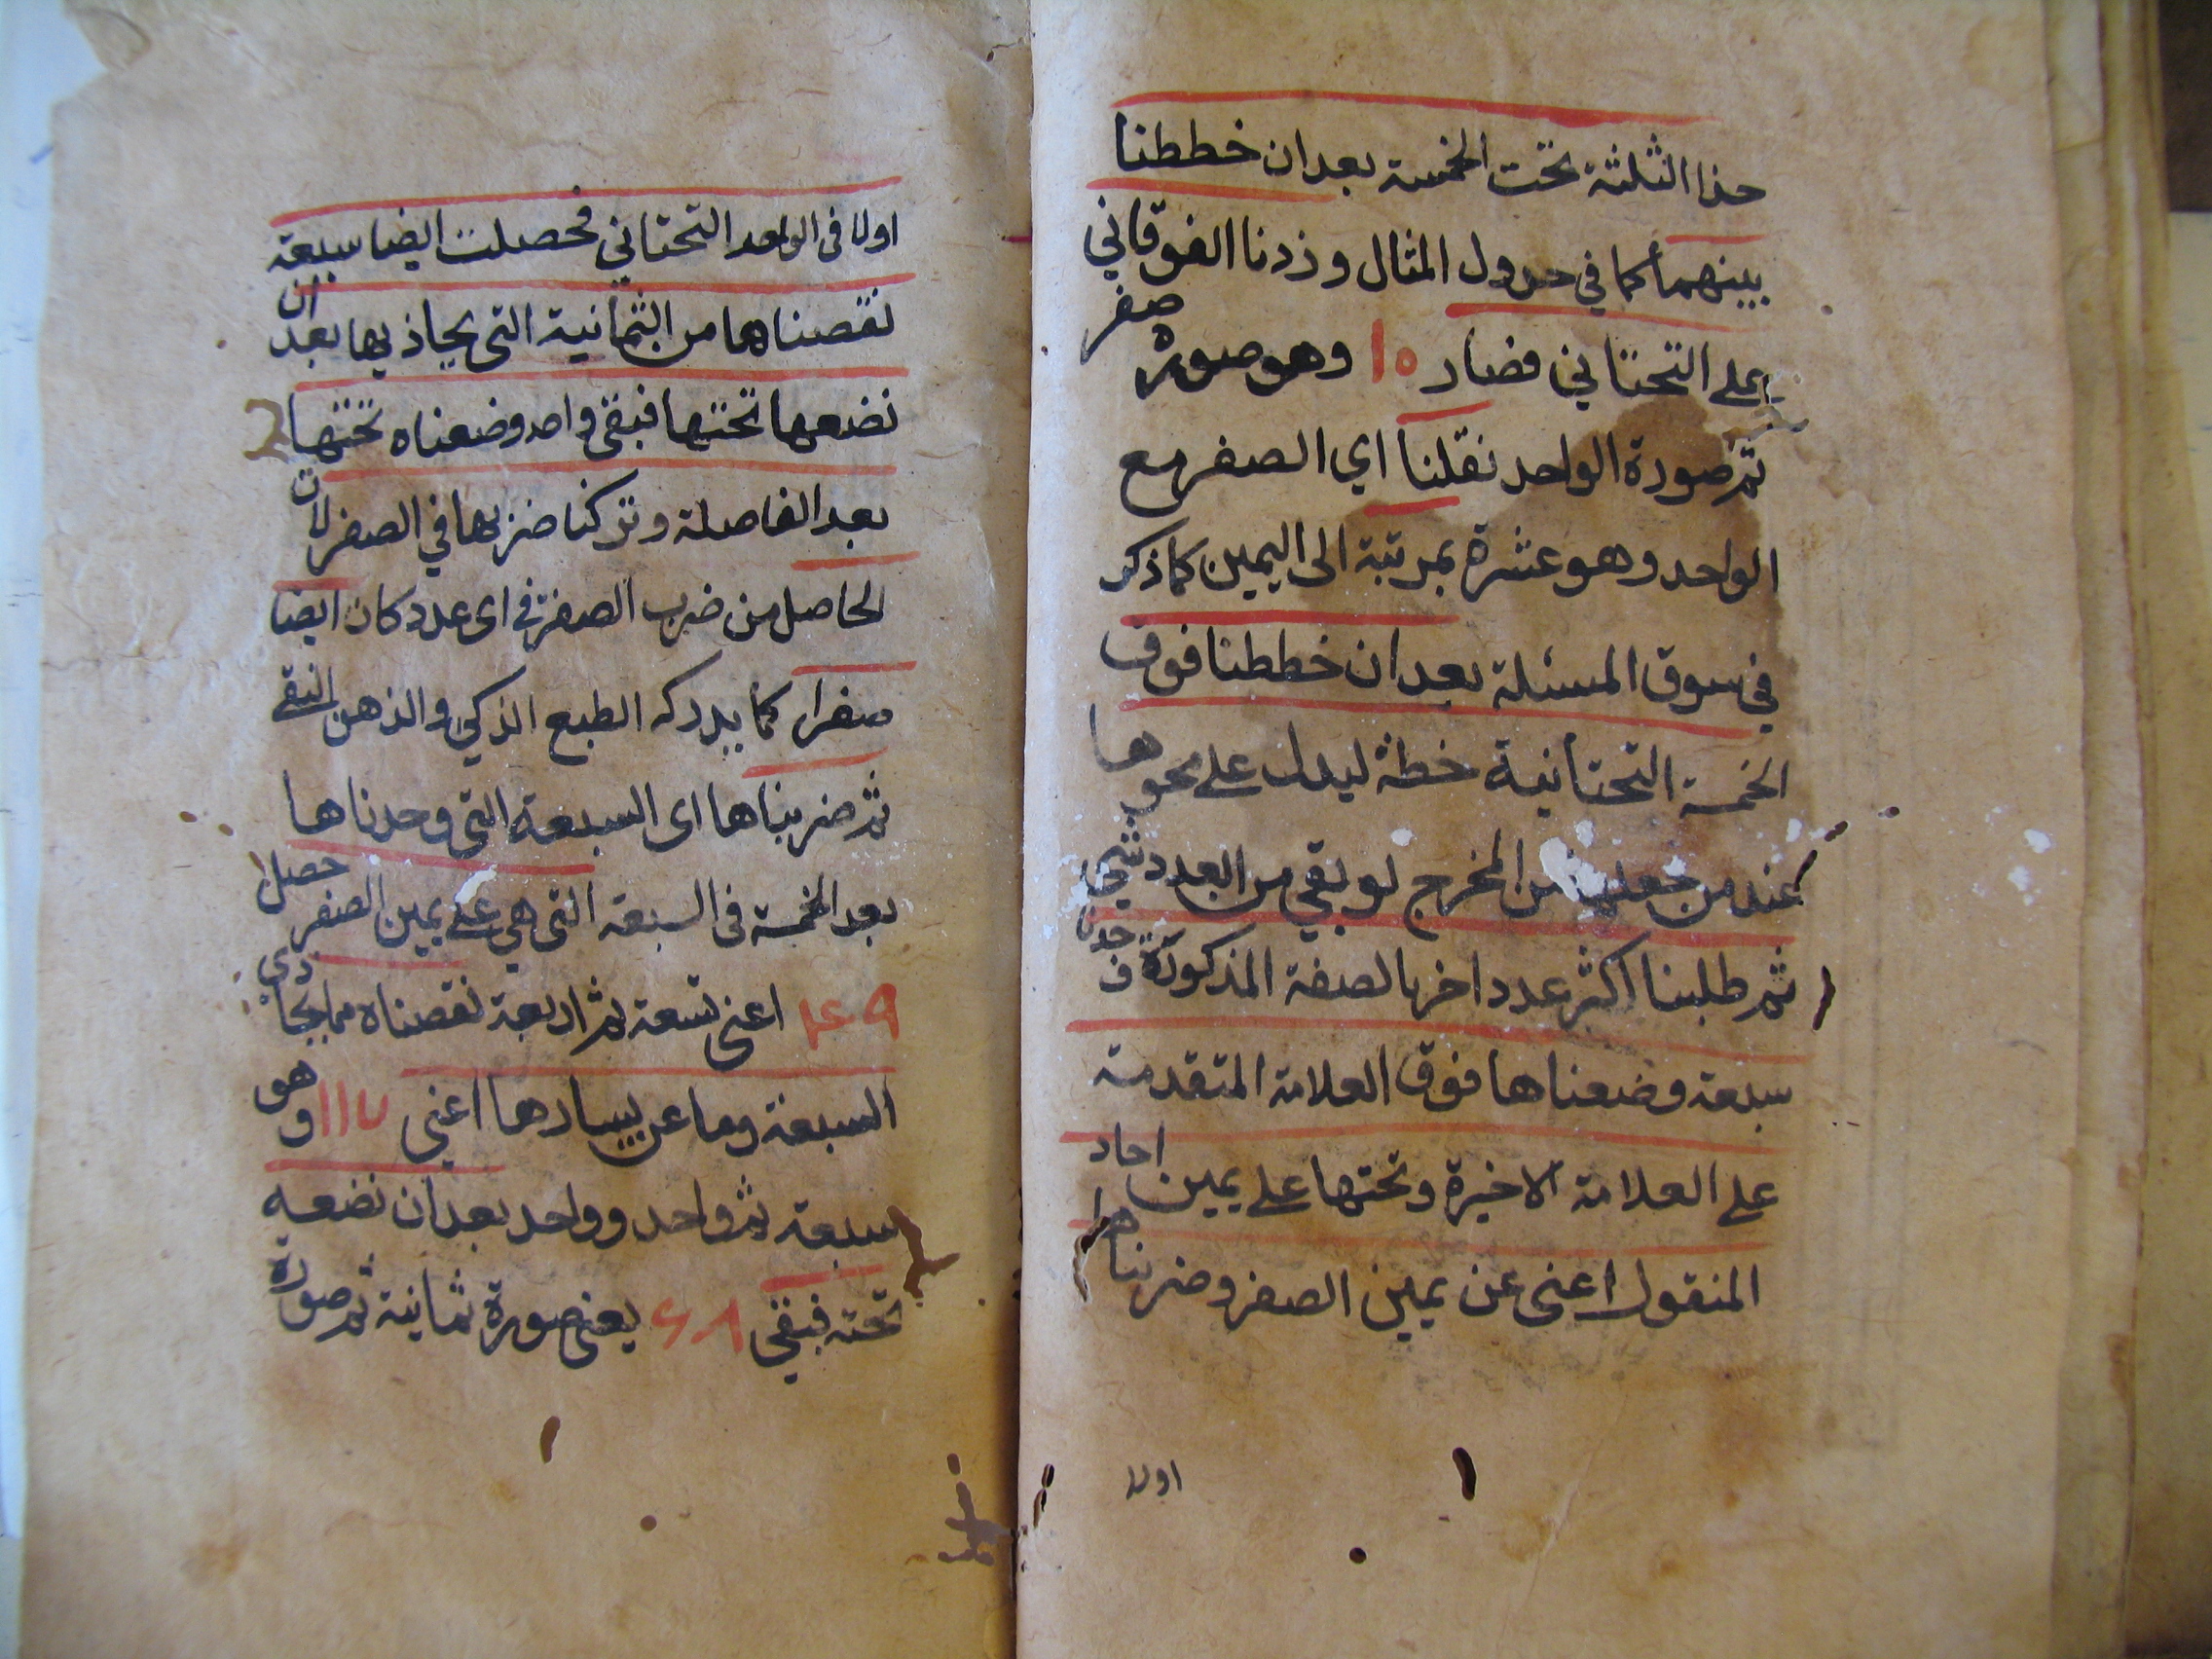 هذا الثلثة تحت الخمسة بعد ان خططنا
بينهما كما في جدول المثال وزدنا الفوقاني
على التحتاني فصار ١٥ وهو صورة صفر
ثم صورة الواحد نقلنا اي الصفر مع
الواحد وهو عشرة بمرتبة الى اليمين كما ذكر
في سوق المسئلة بعد ان خططنا فوق
الخمسة التحتانية خطة ليدل على محوها
عند من المخرج لو بقي من العدد شي
ثم طلبنا اكثر عدد اخر بالصفة المذكورة فوجدنا
سبعة وضعناها فوق العلامة المتقدمة
على العلامة الاخيرة وتحتها على يمين احاد
المنقول اعنى عن يمين الصفر وضربناها
اولا
اولا فى الواحد التحتاني فحصلت ايضا سبعة
نقصناها من الثمانية التى يحاذيها بعد ان
نضعها تحتها فبقى واحد وضعناه تحتها
بعد الفاصلة وتركنا ضربها في الصفر لان
الحاصل من ضرب الصفر في اى عدد كان ايضا
صفرا كما يدركه الطبع الذكي والذهن النقي
ثم ضربناها اى السبعة التى وجدناها
بعد الخمسة فى السبعة التى هي على يمين الصفر حصل
٤٩ اعنى تسعة ثم اربعة نقصناه مما يحاذي
السبعة وما عن يسارها اعنى ١١٧ وهو
سبعة ثم واحد وواحد بعد ان نضعه
تحته فبقى ٦٨ يعنى صورة ثمانية ثم صورة